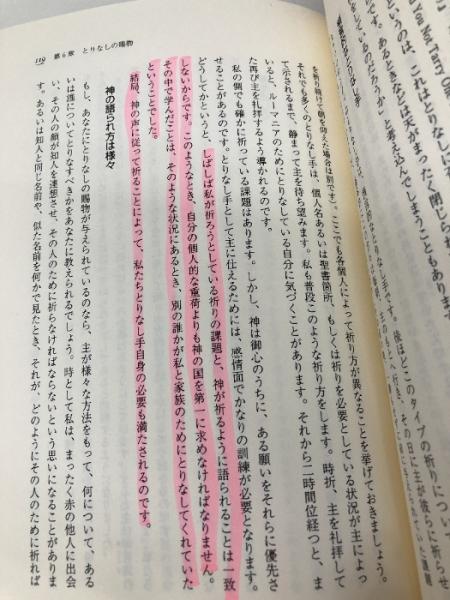 Do Not Tarry
というのは、これはとりなしに
す。あるときなどは天がまったく閉じら
ているのだろうか」と考え込んでしまうこともあります
を祈り続けて朝を迎えた場合は別です)。ここでも各個人によって祈り方が異なることを挙げておきましょう。
それでも多くのとりなし手は、個人名あるいは聖書箇所、もしくは祈りを必要としている状況が主によっ
て示されるまで、静まって主を待ち望みます。私も普段このような祈り方をします。時折、主を礼拝して
いると、ルーマニアのためにとりなしている自分に気づくことがあります。それから二時間位経つと、ま
た再び主を礼拝するよう導かれるのです。
私の側でも確かに祈っている課題はあります。しかし、神は御心のうちに、ある願いをそれらに優先さ
せることがあるのです。とりなし手として主に仕えるためには、感情面でかなりの訓練が必要となります。
どうしてかというと、しばしば私が祈ろうとしている祈りの課題と、神が祈るように語られることは一致
しないからです。このようなとき、自分の個人的な重荷よりも神の国を第一に求めなければなりません。
その中で学んだことは、そのような状況にあるとき、別の誰かが私と家族のためにとりなしてくれていた
ということでした。
結局、神の声に従って祈ることによって、私たちとりなし手自身の必要も満たされるのです。
神の語られ方は様々
もし、あなたにとりなしの賜物が与えられているのなら、主が様々な方法をもって、何について、ある
いは誰についてとりなすべきかをあなたに教えられるでしょう。時として私は、まったく赤の他人に出会
い、その人の顔が知人を連想させ、その人のために祈らなければならないという思いになることがありま
す。あるいは知人と同じ名前や、似た名前を何かで見たとき、それが、どのようにその人のために祈れば
119 第6章 とりなしの賜物